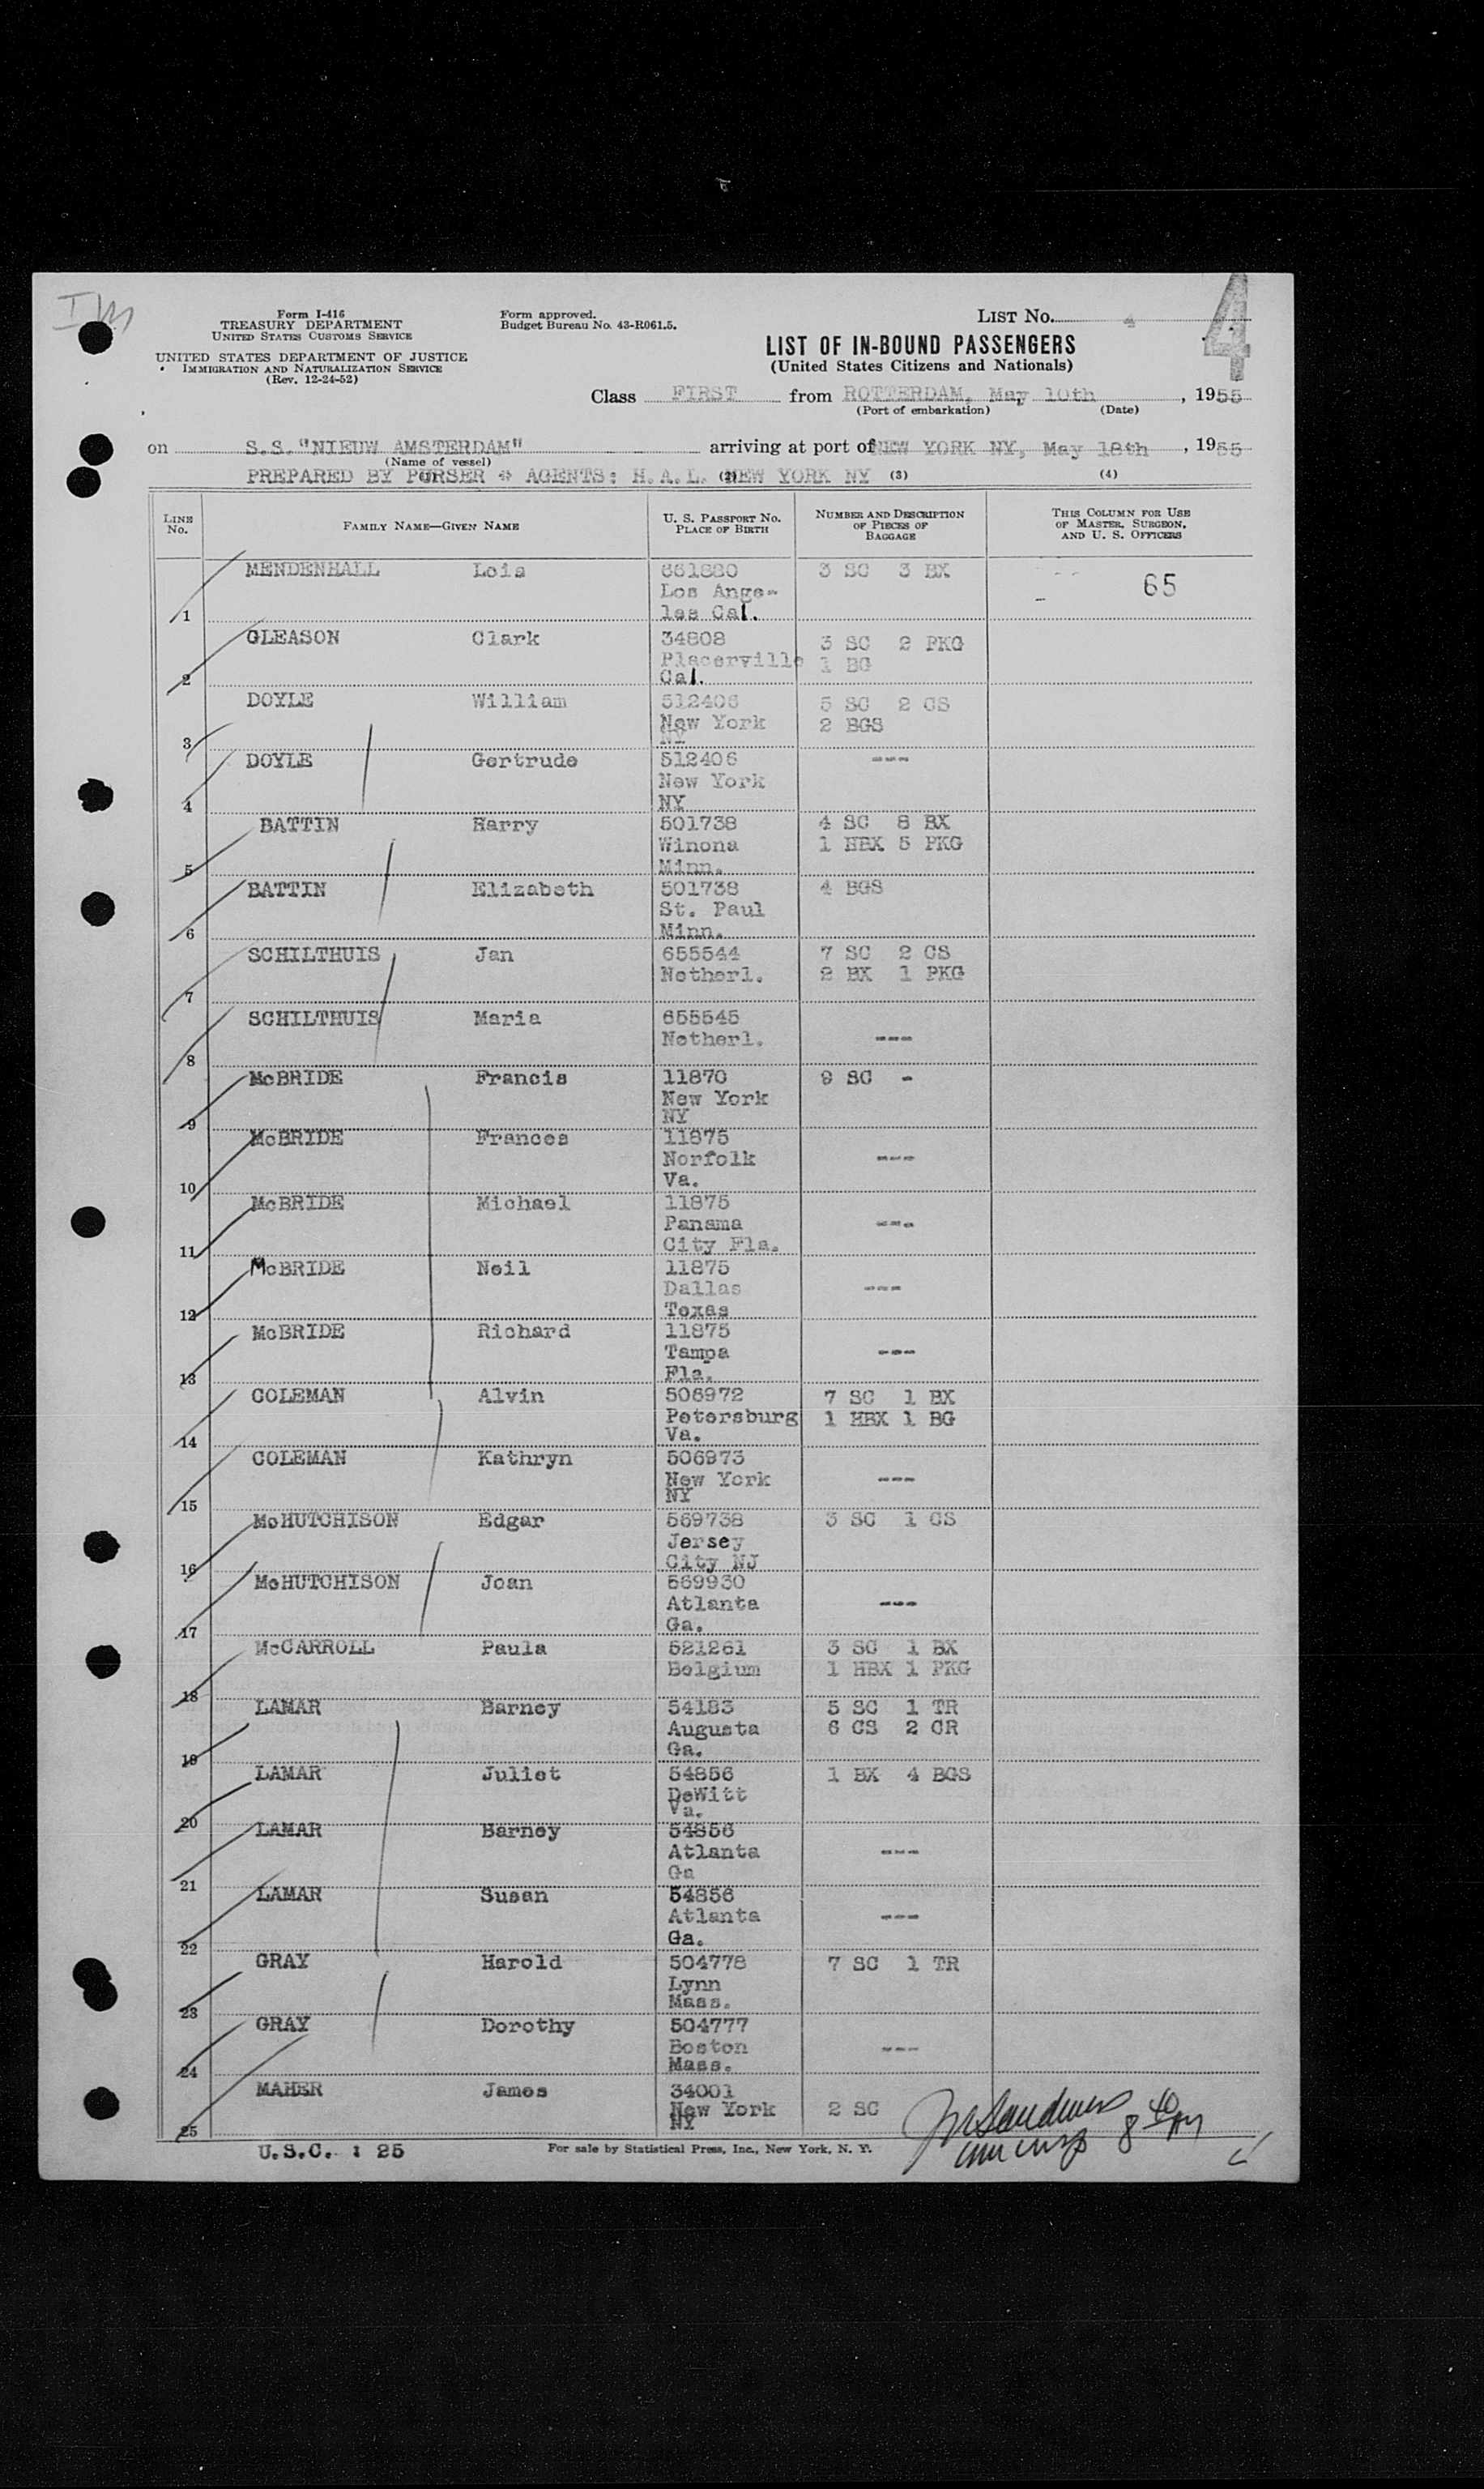 Form I-416
TREASURY DEPARTMENT
UNITED STATES CUSTOMS SERVICE
UNITED STATES DEPARTMENT OF JUSTICE
IMMIGRATION AND NATURALIZATION SERVICE
(Rev. 12-24-52)
Form approved.
Budget Bureau No. 43-R061.5.
LIST No. 4
4
LIST OF IN-BOUND PASSENGERS
(United States Citizens and Nationals)
Class FIRST from ROTTERDAM, May 10th, 1955
(Port of embarkation) (Date)
on S.S. "NIEUW AMSTERDAM" arriving at port of NEW YORK NY, May 18th, 1955
(Name of vessel)
PREPARED BY PURSER * AGENTS: H.A.L. NEW YORK NY
(2) (3) (4)
LINE No. FAMILY NAME—GIVEN NAME U. S. PASSPORT No. PLACE OF BIRTH NUMBER AND DESCRIPTION OF PIECES OF BAGGAGE THIS COLUMN FOR USE OF MASTER, SURGEON, AND U. S. OFFICERS
MENDENHALL Lois 661880 3 SC 3 BX
Los Ange- 65
1 les Cal.
GLEASON Clark 34808 3 SC 2 PKG
Placerville 1 BG
2 Cal.
DOYLE William 512406 5 SC 2 CS
New York 2 BGS
3 NY
DOYLE Gertrude 512406 ---
New York
4 NY
BATTIN Harry 501738 4 SC 8 BX
Winona 1 HBX 5 PKG
5 Minn.
BATTIN Elizabeth 501738 4 BGS
St. Paul
6 Minn.
SCHILTHUIS Jan 655544 7 SC 2 CS
Netherl. 2 BX 1 PKG
7
SCHILTHUIS Maria 655545
Netherl. ---
8
McBRIDE Francis 11870 9 SC -
New York
9 NY
McBRIDE Frances 11875
Norfolk ---
10 Va.
McBRIDE Michael 11875
Panama ---
11 City Fla.
McBRIDE Neil 11875
Dallas ---
12 Texas
McBRIDE Richard 11875
Tampa ---
13 Fla.
COLEMAN Alvin 506972 7 SC 1 BX
Petersburg 1 HBX 1 BG
14 Va.
COLEMAN Kathryn 506973
New York ---
15 NY
McHUTCHISON Edgar 569738 3 SC 1 CS
Jersey
16 City NJ
McHUTCHISON Joan 569930
Atlanta ---
17 Ga.
McCARROLL Paula 521261 3 SC 1 BX
Belgium 1 HBX 1 PKG
18
LAMAR Barney 54183 5 SC 1 TR
Augusta 6 CS 2 CR
19 Ga.
LAMAR Juliet 54856 1 BX 4 BGS
DeWitt
20 Va.
LAMAR Barney 54856
Atlanta ---
21 Ga
LAMAR Susan 54856
Atlanta ---
22 Ga.
GRAY Harold 504778 7 SC 1 TR
Lynn
23 Mass.
GRAY Dorothy 504777
Boston ---
24 Mass.
MAHER James 34001
New York 2 SC
25 NY
U.S.C. : 25
For sale by Statistical Press, Inc., New York, N. Y.